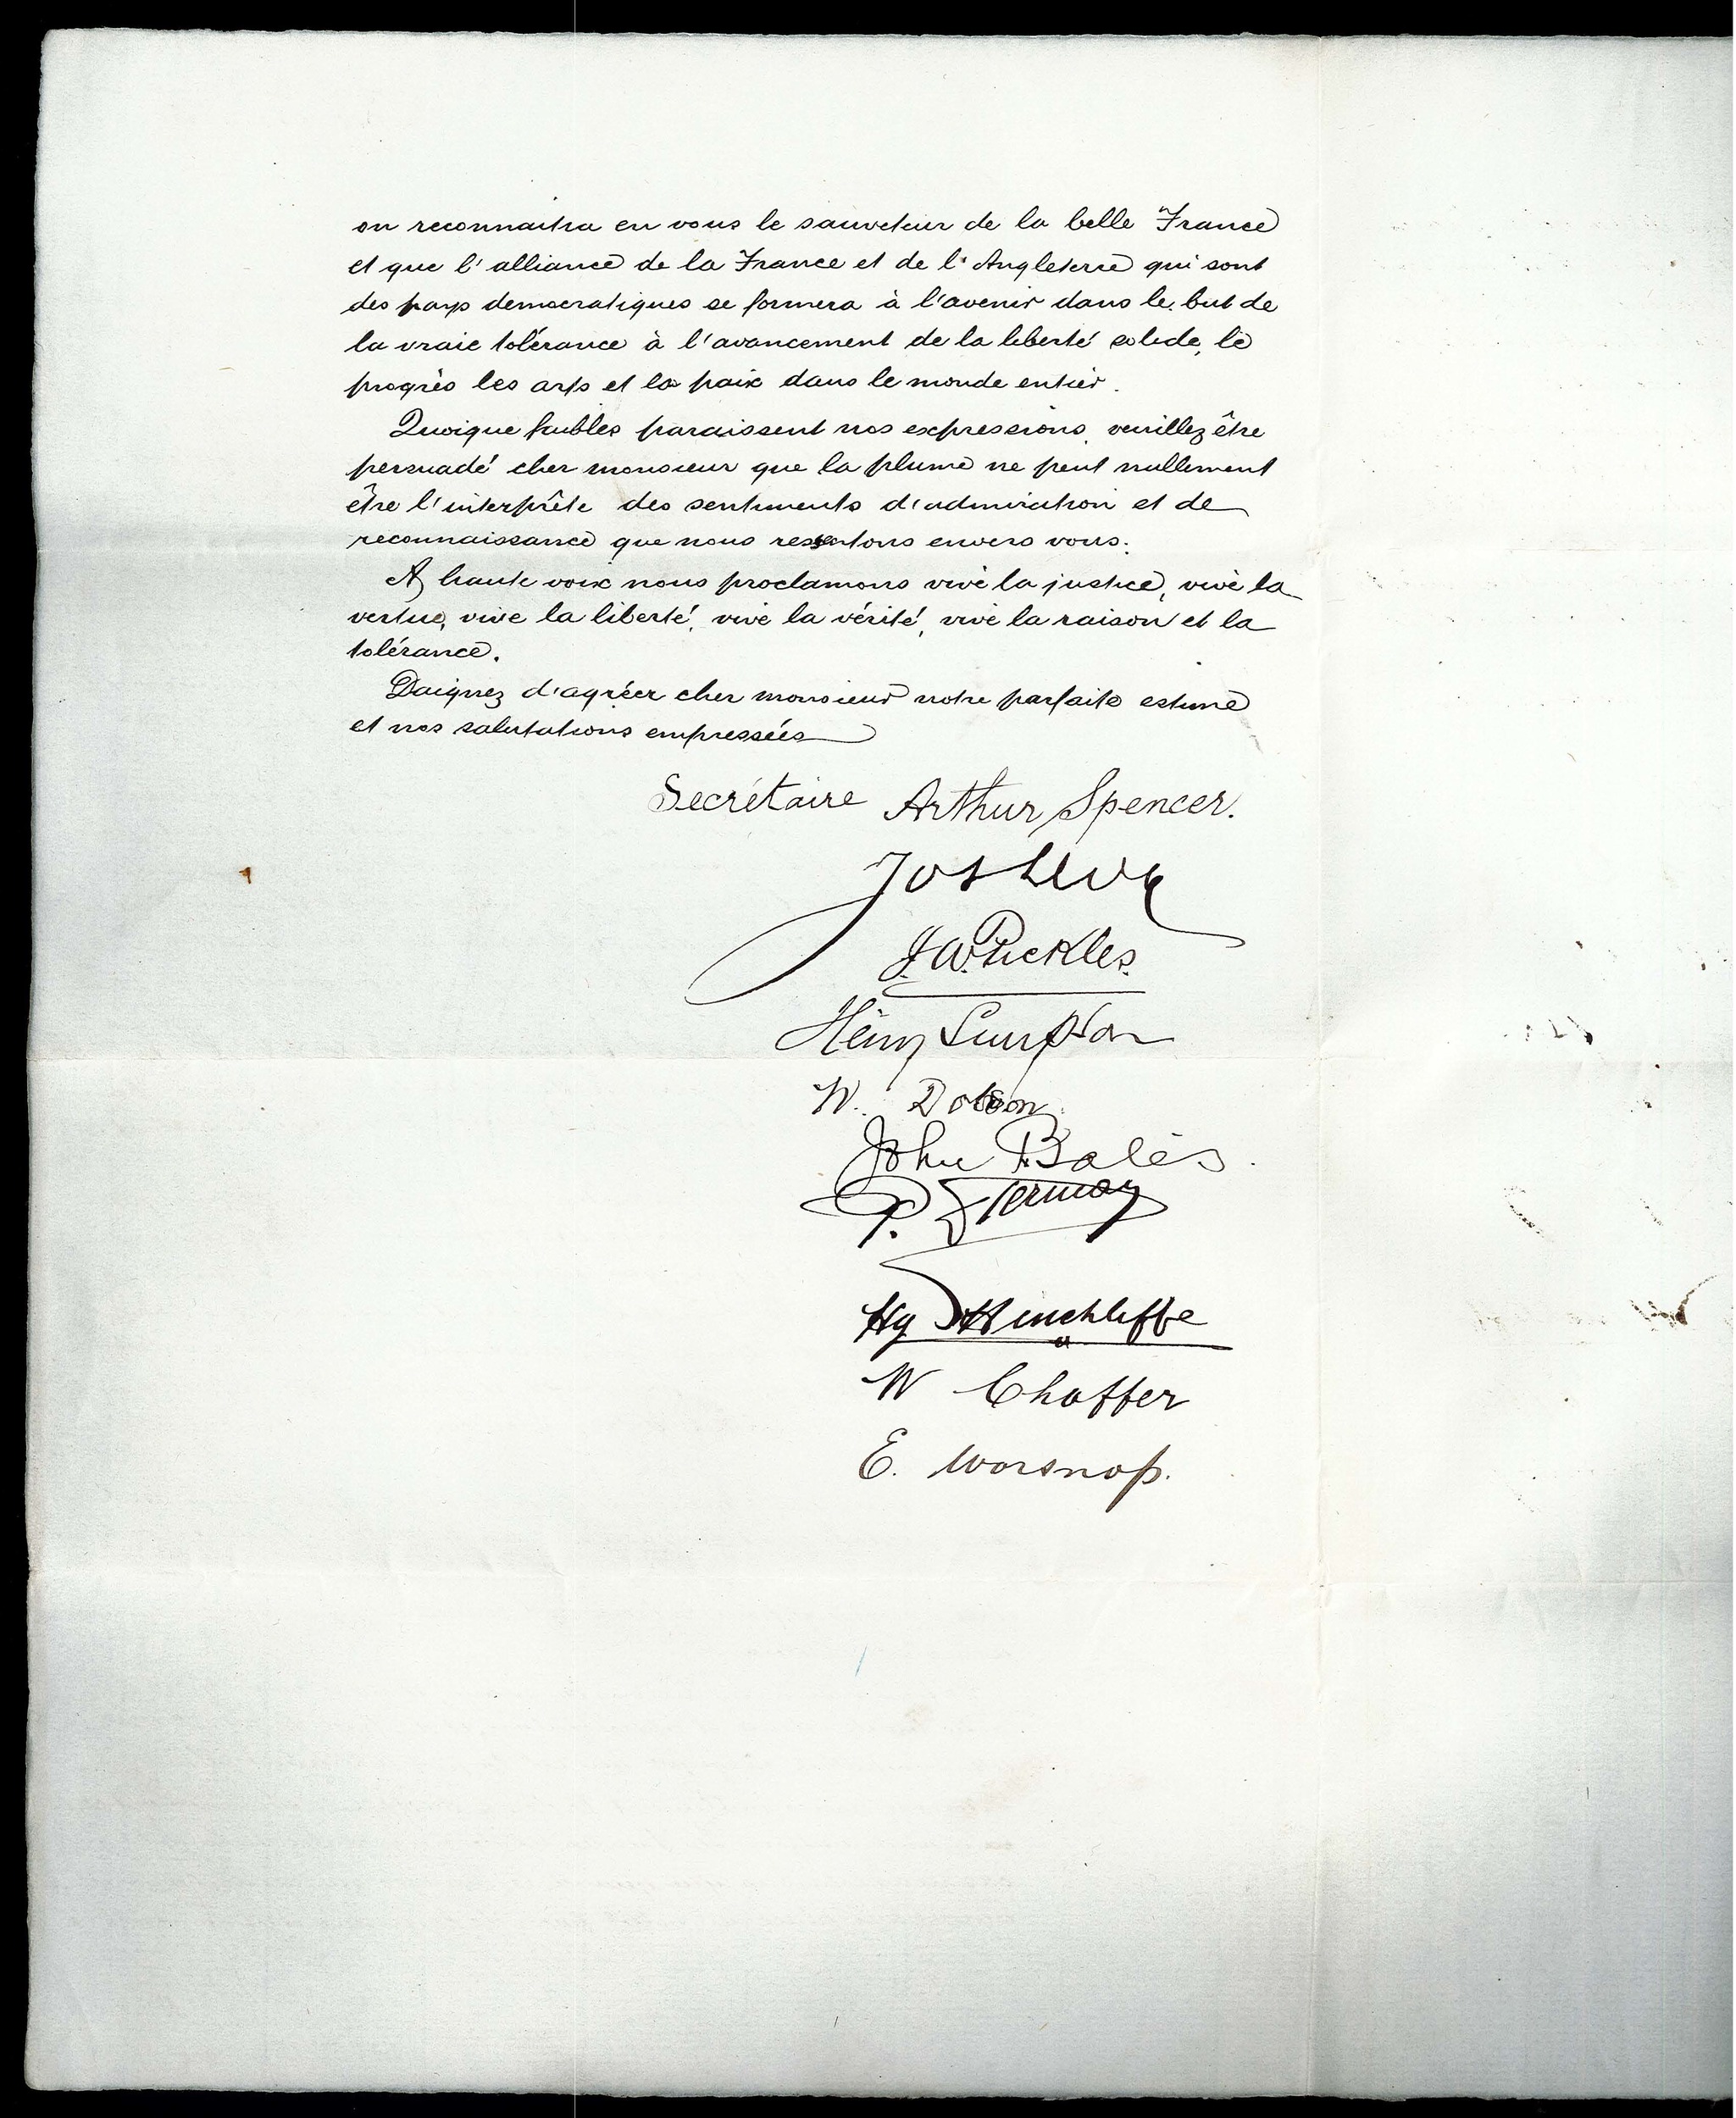 on reconnaitra en vous le sauveteur de la belle France
et que l'alliance de la France et de l'Angleterre qui sont
des pays democratiques se formera à l'avenir dans le but de
la vraie tolérance à l'avancement de la liberté solide, le
progrès les arts et la paix dans le monde entier.
Quoique faibles paraissent nos expressions, veuillez être
persuadé cher monsieur que la plume ne peut nullement
être l'interprête des sentiments d'admiration et de
reconnaissance que nous ressentons envers vous.
A haute voix nous proclamons vive la justice, vive la
vertue, vive la liberté, vive la vérité, vive la raison et la
tolérance.
Daignez d'agréer cher monsieur notre parfaite estime
et nos salutations empressées
Secrétaire Arthur Spencer.
Jos
J. W. Pickles.
Henry Simpson
W. Dobson
John Bales.
P.
Hy Hinchliffe
W Chaffer
E. Worsnop.